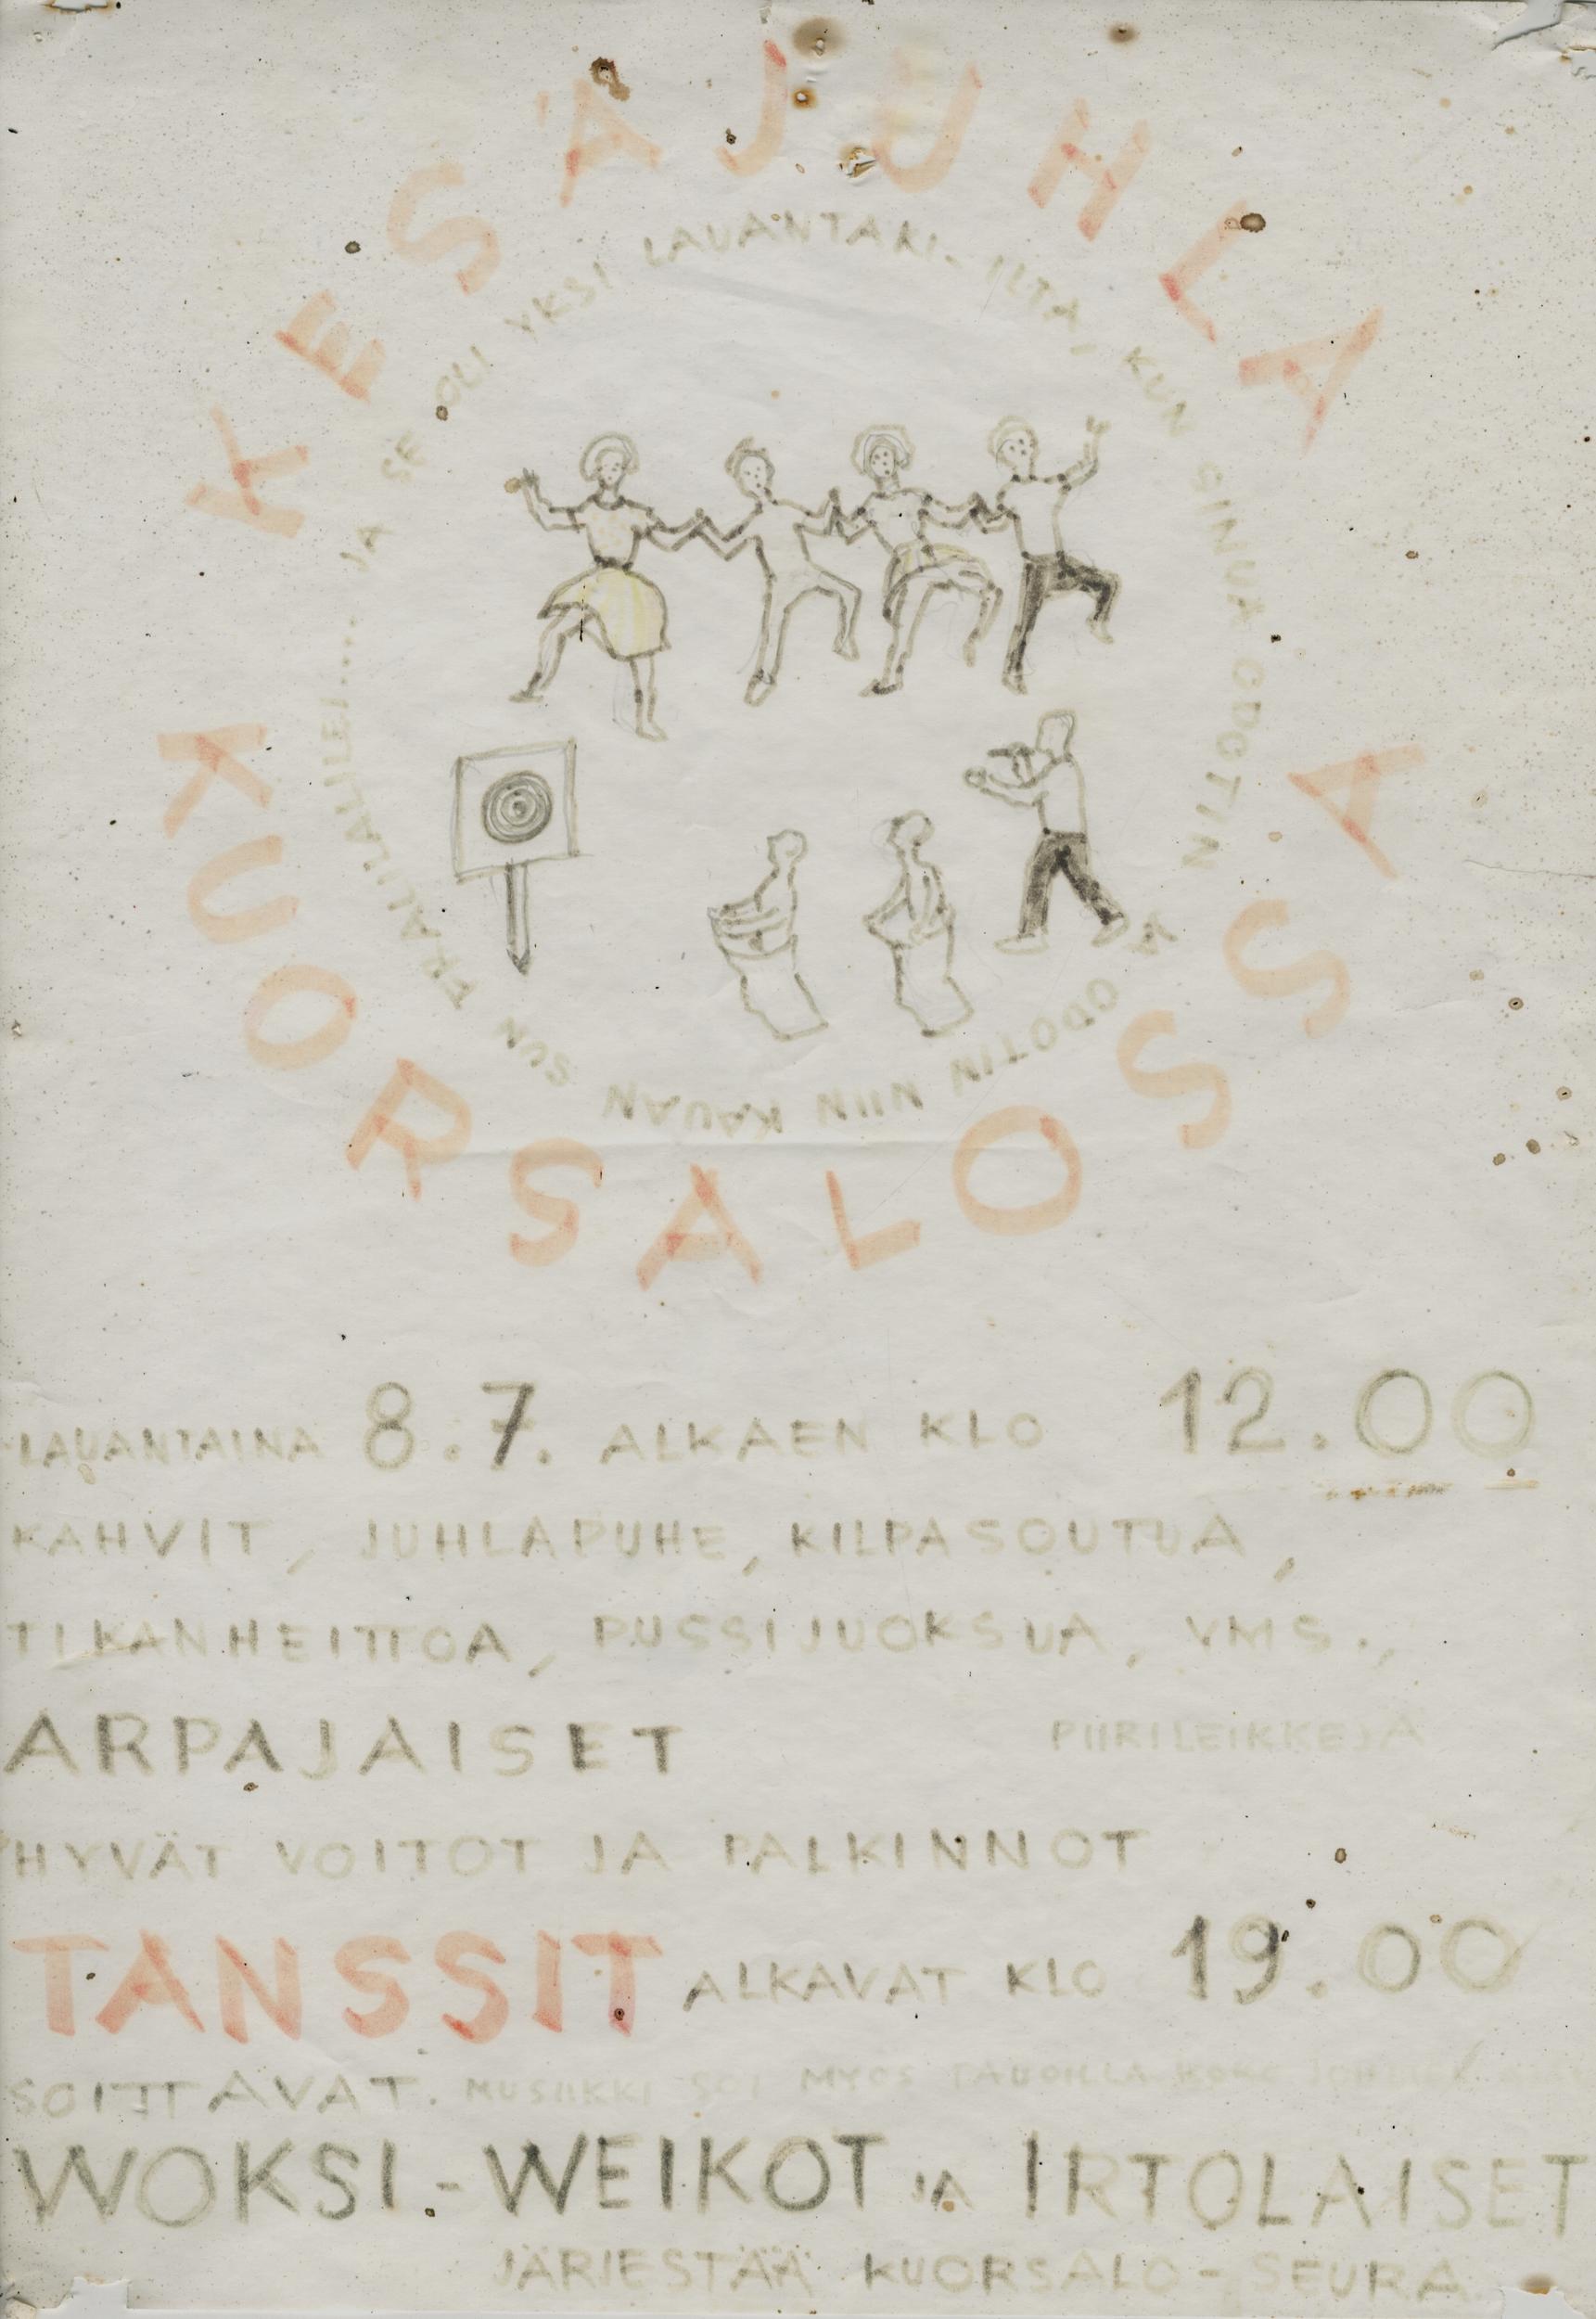 KESÄJUHLA
KUORSALOSSA
JA SE OLI YKSI LAUANTAKI-ILTA, KUN SINUA ODOTIN JA ODOTIN NIIN KAUAN SUN
LAUANTAINA 8.7. ALKAEN KLO 12.00
KAHVIT, JUHLAPUHE, KILPASOUTUA,
TIKANHEITTOA, PUSSIJUOKSUA, YMS.,
ARPAJAISET PIIRILEIKKEJÄ
HYVÄT VOITOT JA PALKINNOT
TANSSIT ALKAVAT KLO 19.00
SOITTAVAT. MUSIIKKI SOI MYÖS TAUOILLA KOKO
WOKSI-WEIKOT JA IRTOLAISET
JÄRJESTÄÄ KUORSALO-SEURA